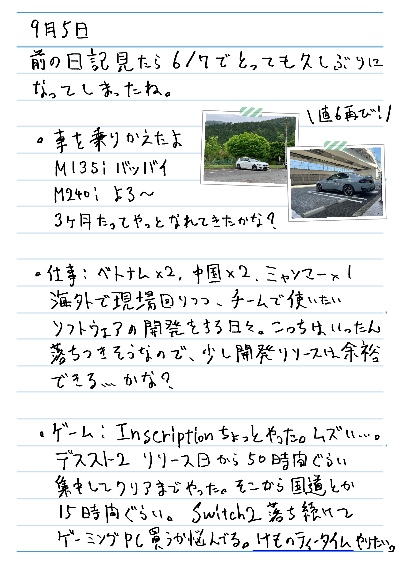 9月5日
前の日記見たら6/7でとっても久しぶりに
なってしまったね。
直6再び!
。車を乗りかえたよ
M135i バッバイ
M240i よろ〜
3ヶ月たってやっとなれてきたかな?
・仕事:ベトナム×2、中国×2、ミャンマー×1
海外で現場回りつつ、チームで使いたい
ソフトウェアの開発をする日々。こっちは、いったん
落ちつきそうなので、少し開発リリースは余裕
できる…かな?
・ゲーム:Inscriptionちょっとやった。ムズい…。
デススト2 リリース日から50時間ぐらい
集中してクリアまでやった。そこから国道とか
15時間ぐらい。Switch2落ち続けて
ゲーミングPC買うか悩んでる。けものティータイムやりたい。